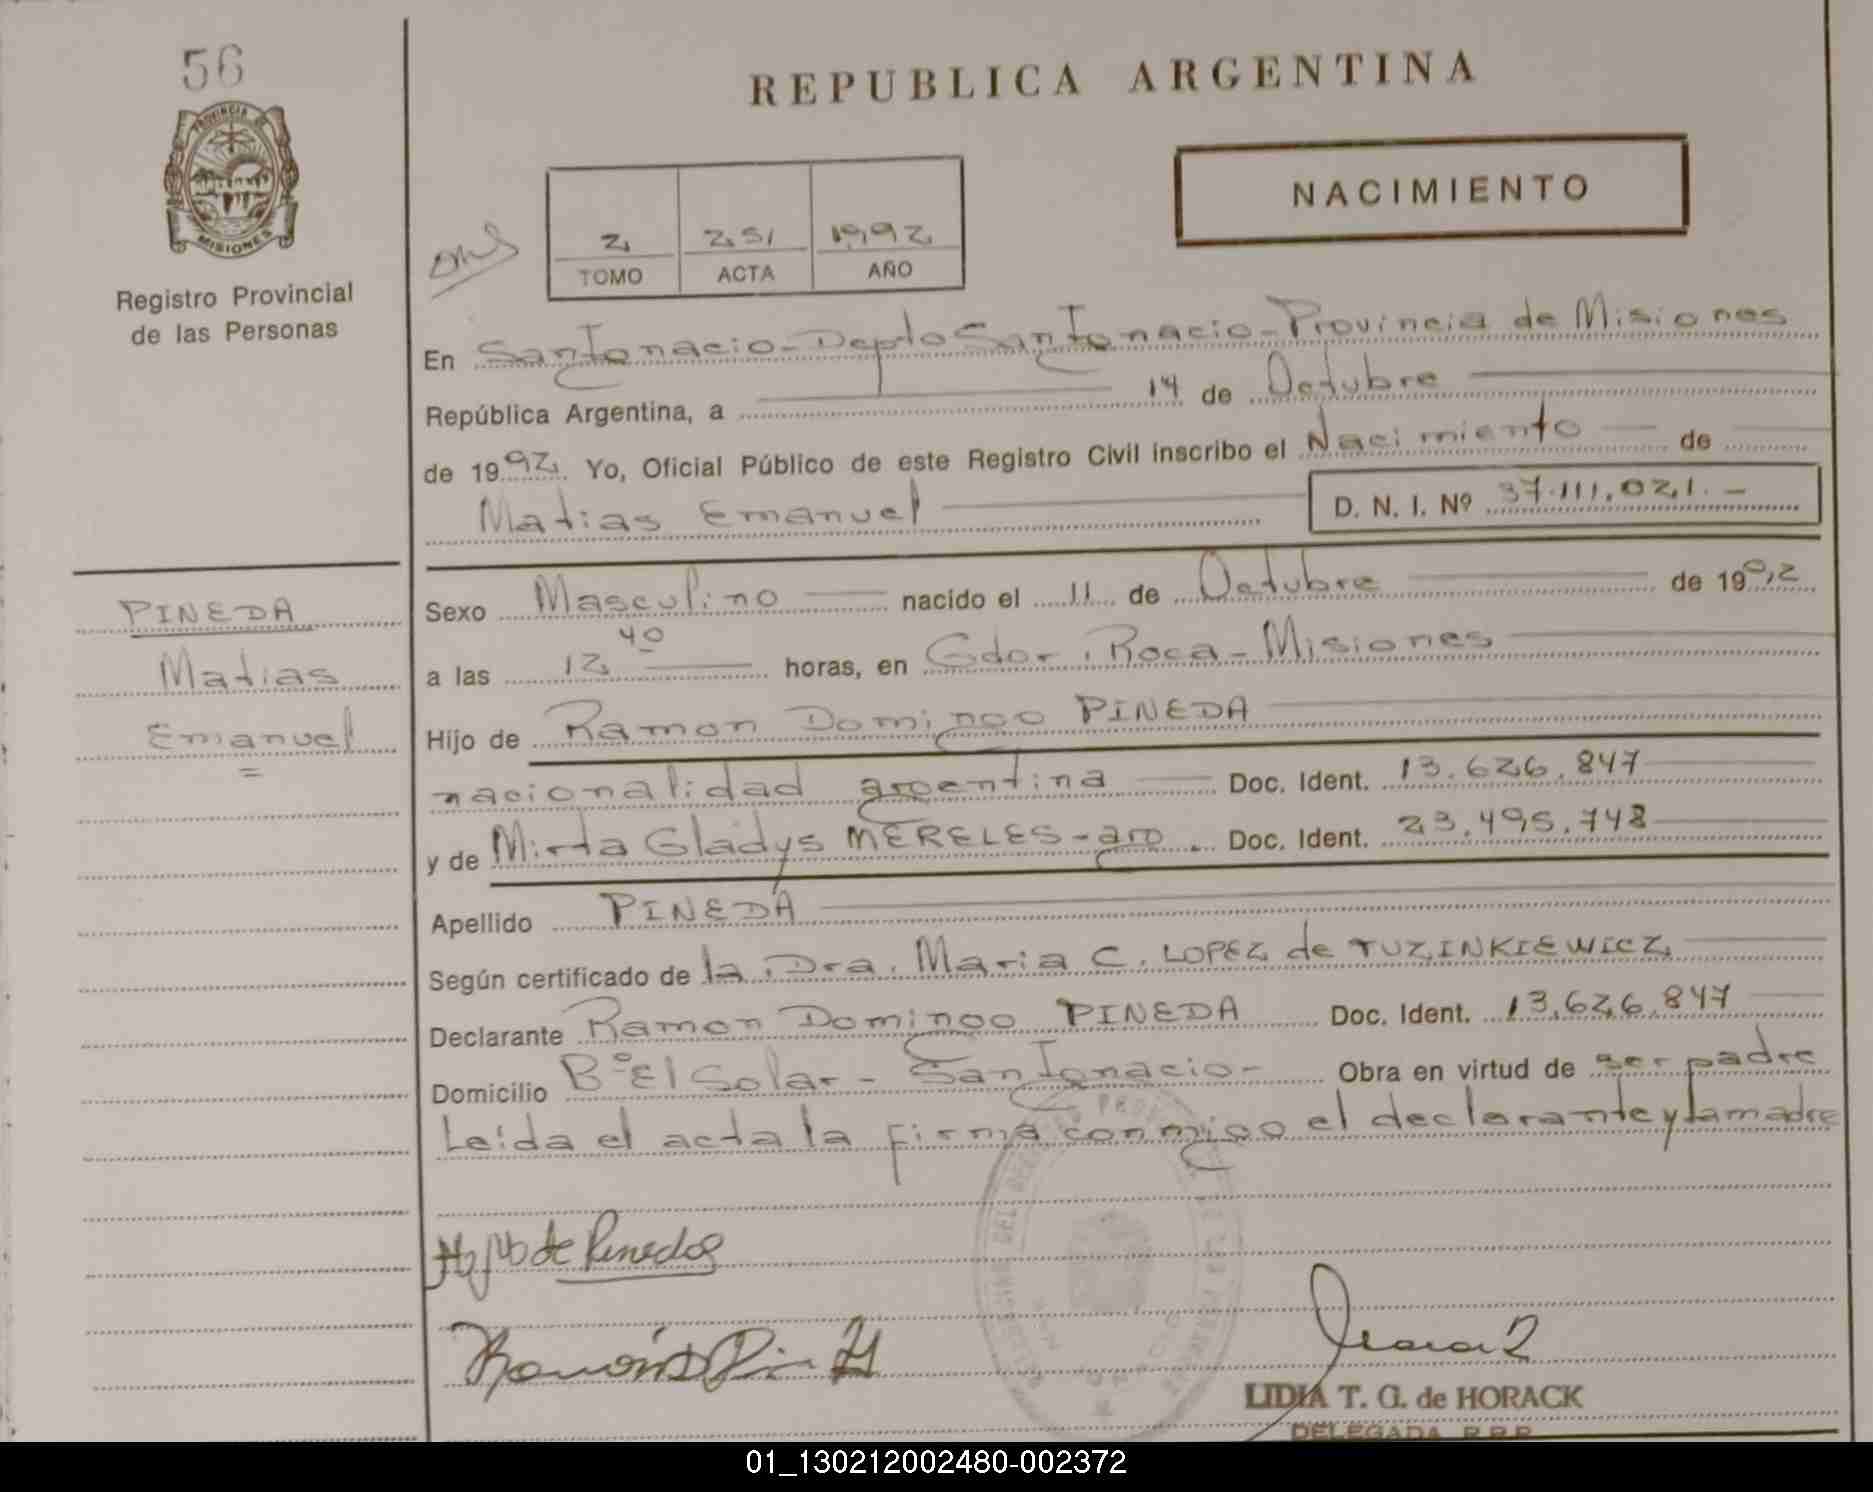 56
REPUBLICA ARGENTINA
PROVINCIA DE
MISIONES
Registro Provincial
de las Personas
NACIMIENTO
2 251 1992
TOMO ACTA AÑO
En San Ignacio - Depto San Ignacio - Provincia de Misiones
República Argentina, a 14 de Octubre
de 1992 Yo, Oficial Público de este Registro Civil inscribo el Nacimiento de
Matias Emanuel D. N. I. Nº 37.111.021.-
PINEDA
Matias
Emanuel
=
Sexo Masculino nacido el 11 de Octubre de 1992
a las 12 40 horas, en Gdor. Roca - Misiones
Hijo de Ramon Domingo PINEDA
nacionalidad argentina Doc. Ident. 13.626.847
y de Mirta Gladys MERELES - arg. Doc. Ident. 23.495.748
Apellido PINEDA
Según certificado de la Dra. Maria C. LOPEZ de TUZINKIEWICZ
Declarante Ramon Domingo PINEDA Doc. Ident. 13.626.847
Domicilio Bº El Solar - San Ignacio - Obra en virtud de ser padre
Leida el acta la firma conmigo el declarante y la madre
de Pineda
LIDIA T. G. de HORACK
DELEGADA R.P.P.
01_130212002480-002372